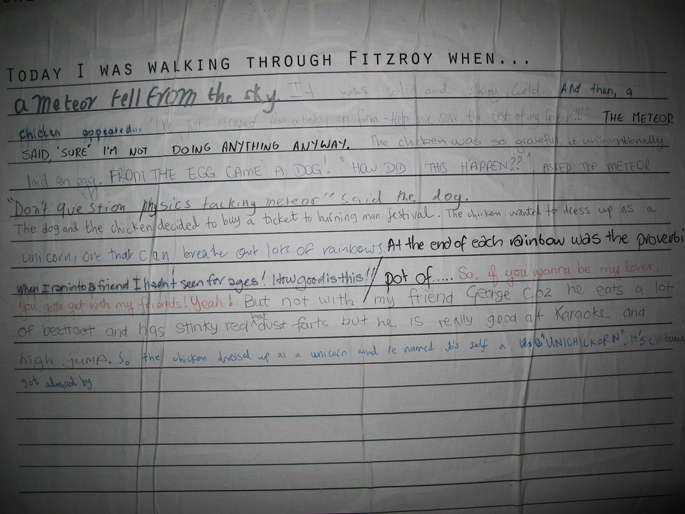 TODAY I WAS WALKING THROUGH FITZROY WHEN...
a meteor fell from the sky. It was solid and shiny gold. And then, a
chicken appeared... I've just escaped from a battery egg farm - Help me save the rest of my friends!!!" THE METEOR
SAID, 'SURE' I'M NOT DOING ANYTHING ANYWAY. The chicken was so grateful, it unintentionally
laid an egg. FROM THE EGG CAME A DOG! "HOW DID THIS HAPPEN??" ASKED THE METEOR
"Don't question physics tacking meteor" said the dog.
The dog and the chicken decided to buy a ticket to burning man festival. The chicken wanted to dress up as a
unicorn, one that can breathe out lots of rainbows. At the end of each rainbow was the proverbi
when I ran into a friend I hadn't seen for ages! How good is this!! / pot of..... So, if you wanna be my lover,
you gotta get with my friends! Yeah! But not with / my friend George Coz he eats a lot
of beetroot and has stinky red dust farts but he is really good at Karaoke and
high jump. So the chicken dressed up as a unicorn and re named its self a "UNICHICKORN". It's costume
got admired by